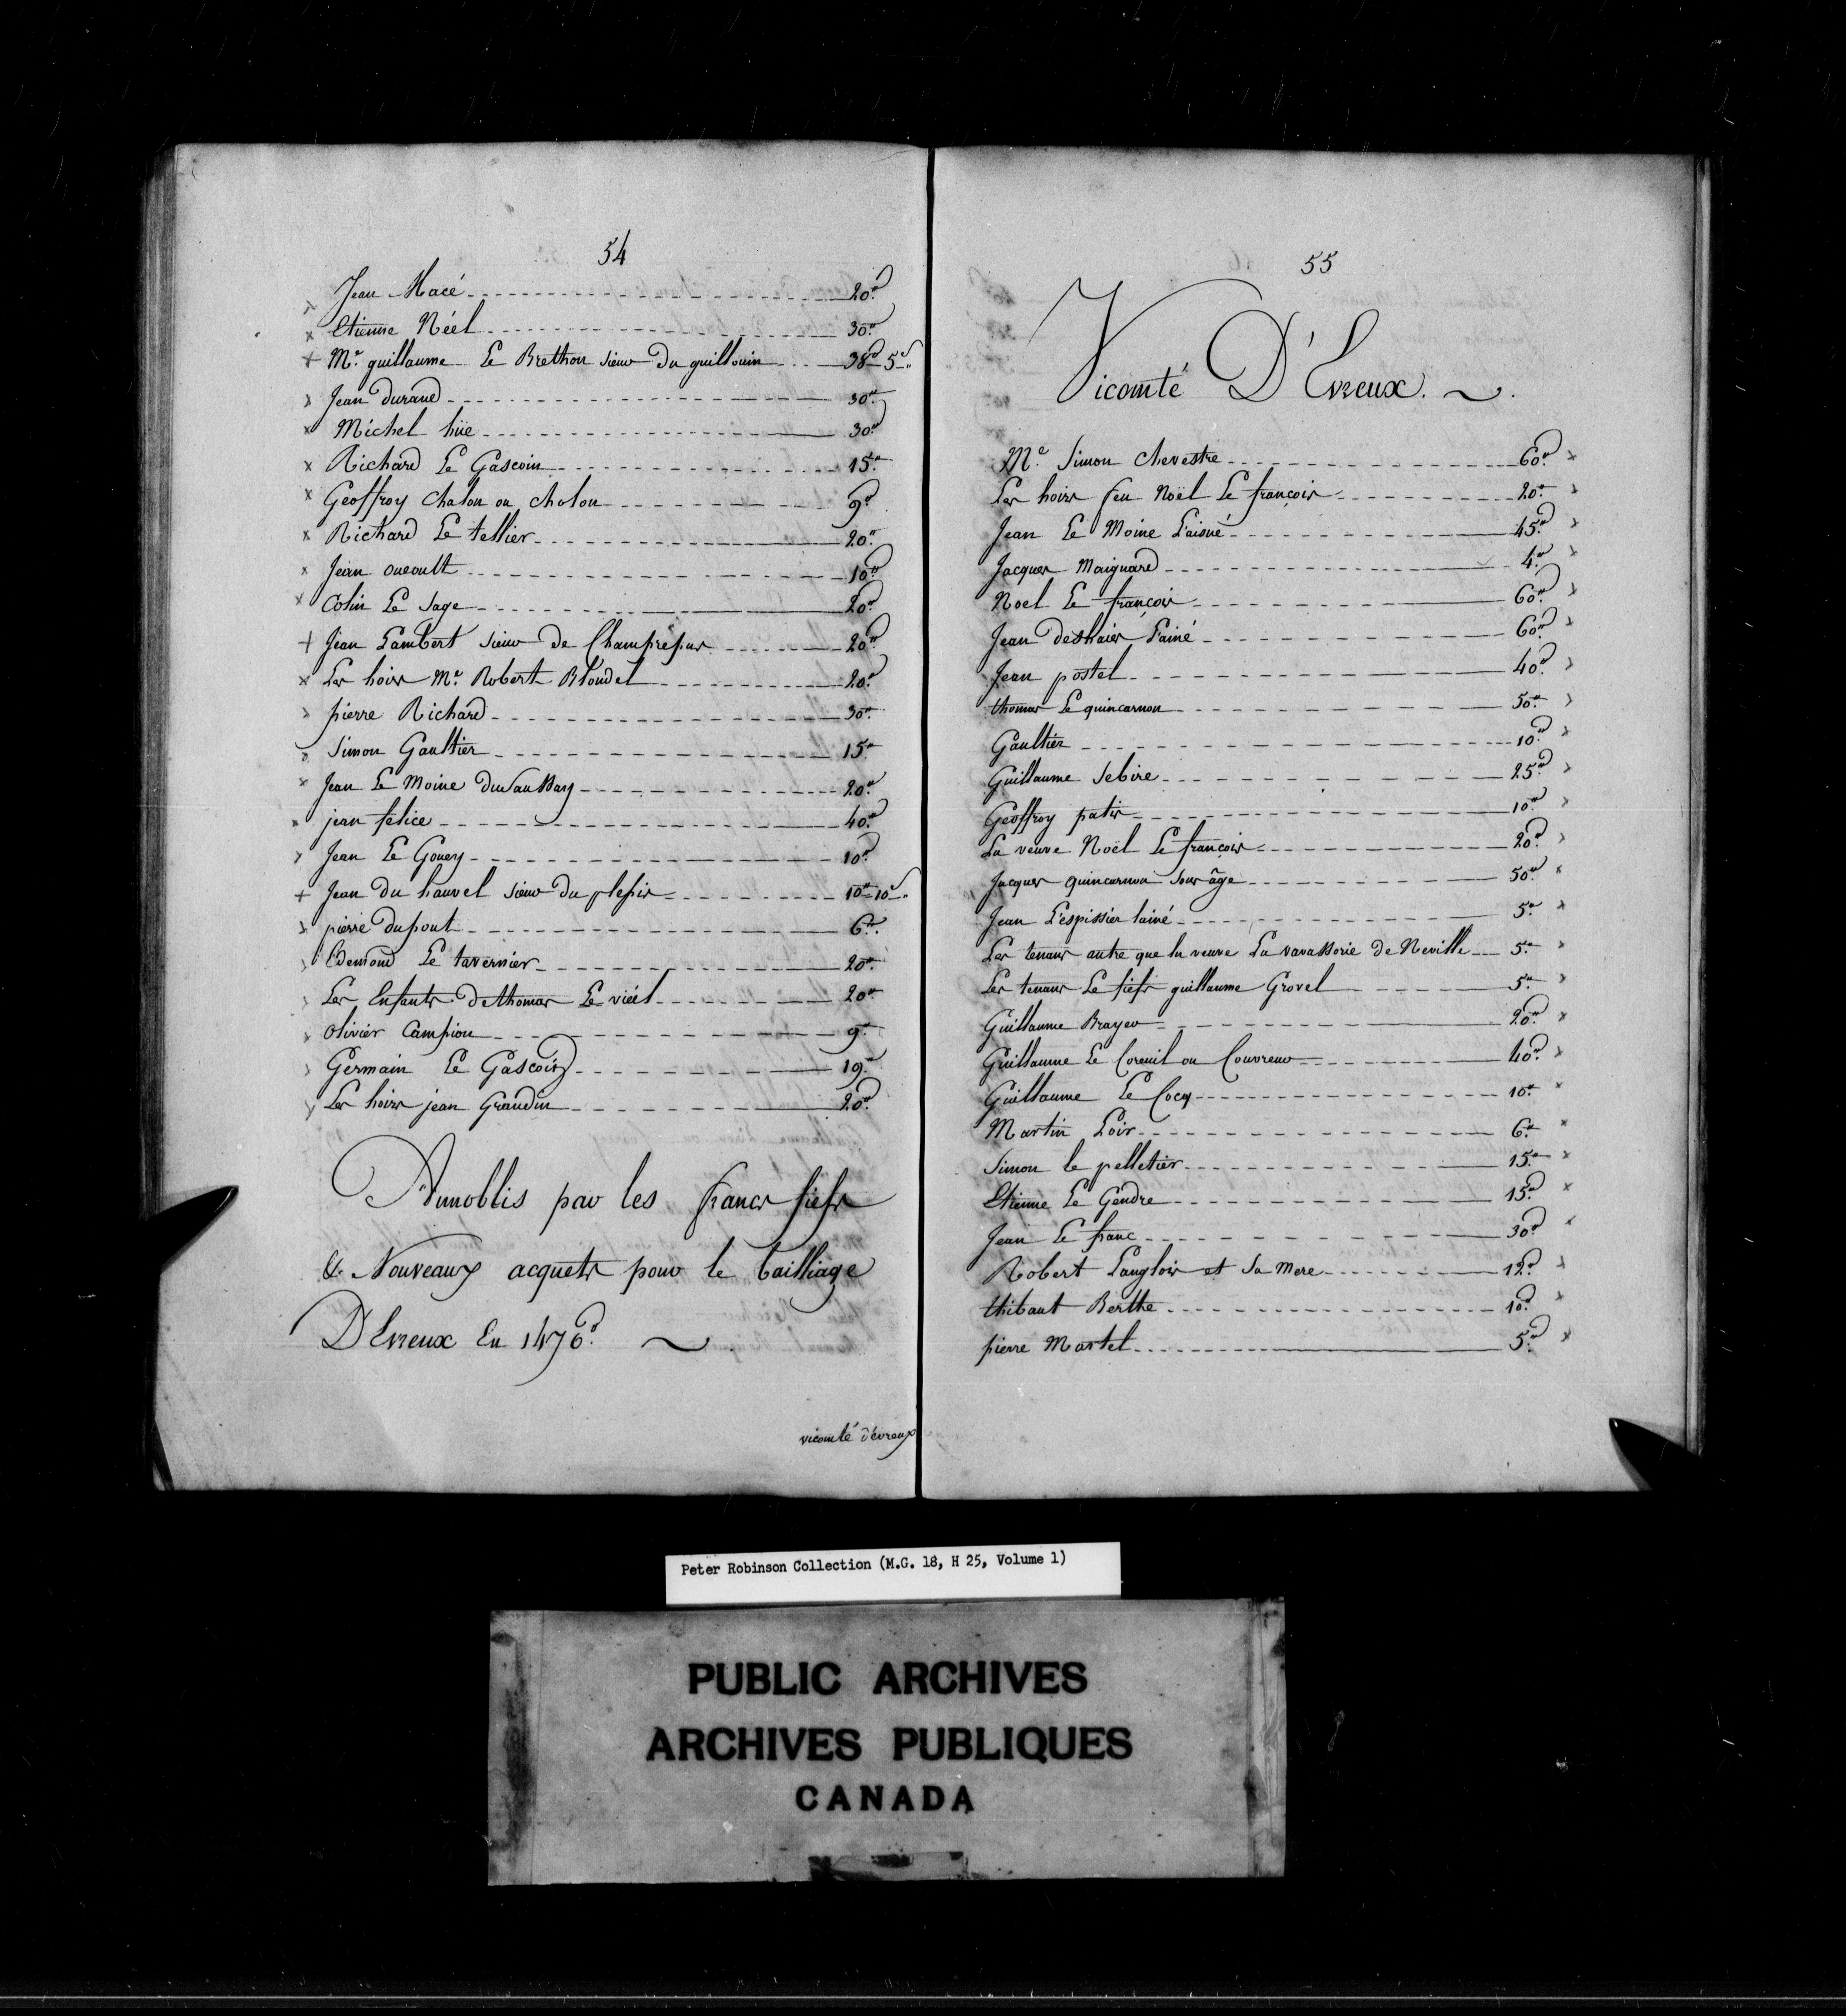 54
Jean Macé 20#
Etienne Néel 30#
Mr. guillaume Le Brethon sieur du guillouin 38# 5s
Jean durand 30#
Michel hüe 30#
Richard Le Gascoin 15#
Geoffroy Chalon ou Cholon 9#
Richard Le tellier 20#
Jean oueoult 10#
Colin Le Sage 20#
Jean Lambert sieur de Champrepus 20#
Les hoirs Mr. Robert Blondel 20#
pierre Richard 30#
Simon Gaultier 15#
Jean Le Moine du 20#
jean felice 40#
Jean Le Gouey 10#
Jean du hauvel sieur du plesis 10# 10s
pierre dupont 6#
Edemond Le tavernier 20#
Les Enfants de thomas Le viéel 20#
Olivier Campion 9#
Germain Le Gascoin 19#
Les hoirs jean Grandin 20#
Annoblis par les francs fiefs
& Nouveaux acquets pour le bailliage
D'Evreux En 1470.
vicomté d'évreux
55
Vicomté D'Evreux.
Me. Simon Chevestre 60#
Les hoirs feu Noël Le françois 20#
Jean Le Moine L'aisné 45#
Jacques Maignard 4#
Noel Le françois 60#
Jean deshaies L'ainé 60#
Jean postel 40#
thomas Le quincarnon 50#
Gaultier 10#
Guillaume Sebire 25#
Geoffroy patis 10#
La veuve Noël Le françois 20#
Jacques quincarnon sous âge 50#
Jean L'espissier lainé 5#
Les tenans autre que la veuve La vavassorie de Neville 5#
Les tenans Le fiefs guillaume Grovel 5#
Guillaume Brayer 20#
Guillaume Le Coreuil ou Couvreur 40#
Guillaume Le Cocq 10#
Martin Loir 6#
Simon le pelletier 15#
Etienne Le Gendre 15#
Jean Le franc 30#
Robert Langlois et Sa Mere 12#
thibaut Berthe 10#
pierre Martel 5#
Peter Robinson Collection (M.G. 18, H 25, Volume 1)
PUBLIC ARCHIVES
ARCHIVES PUBLIQUES
CANADA